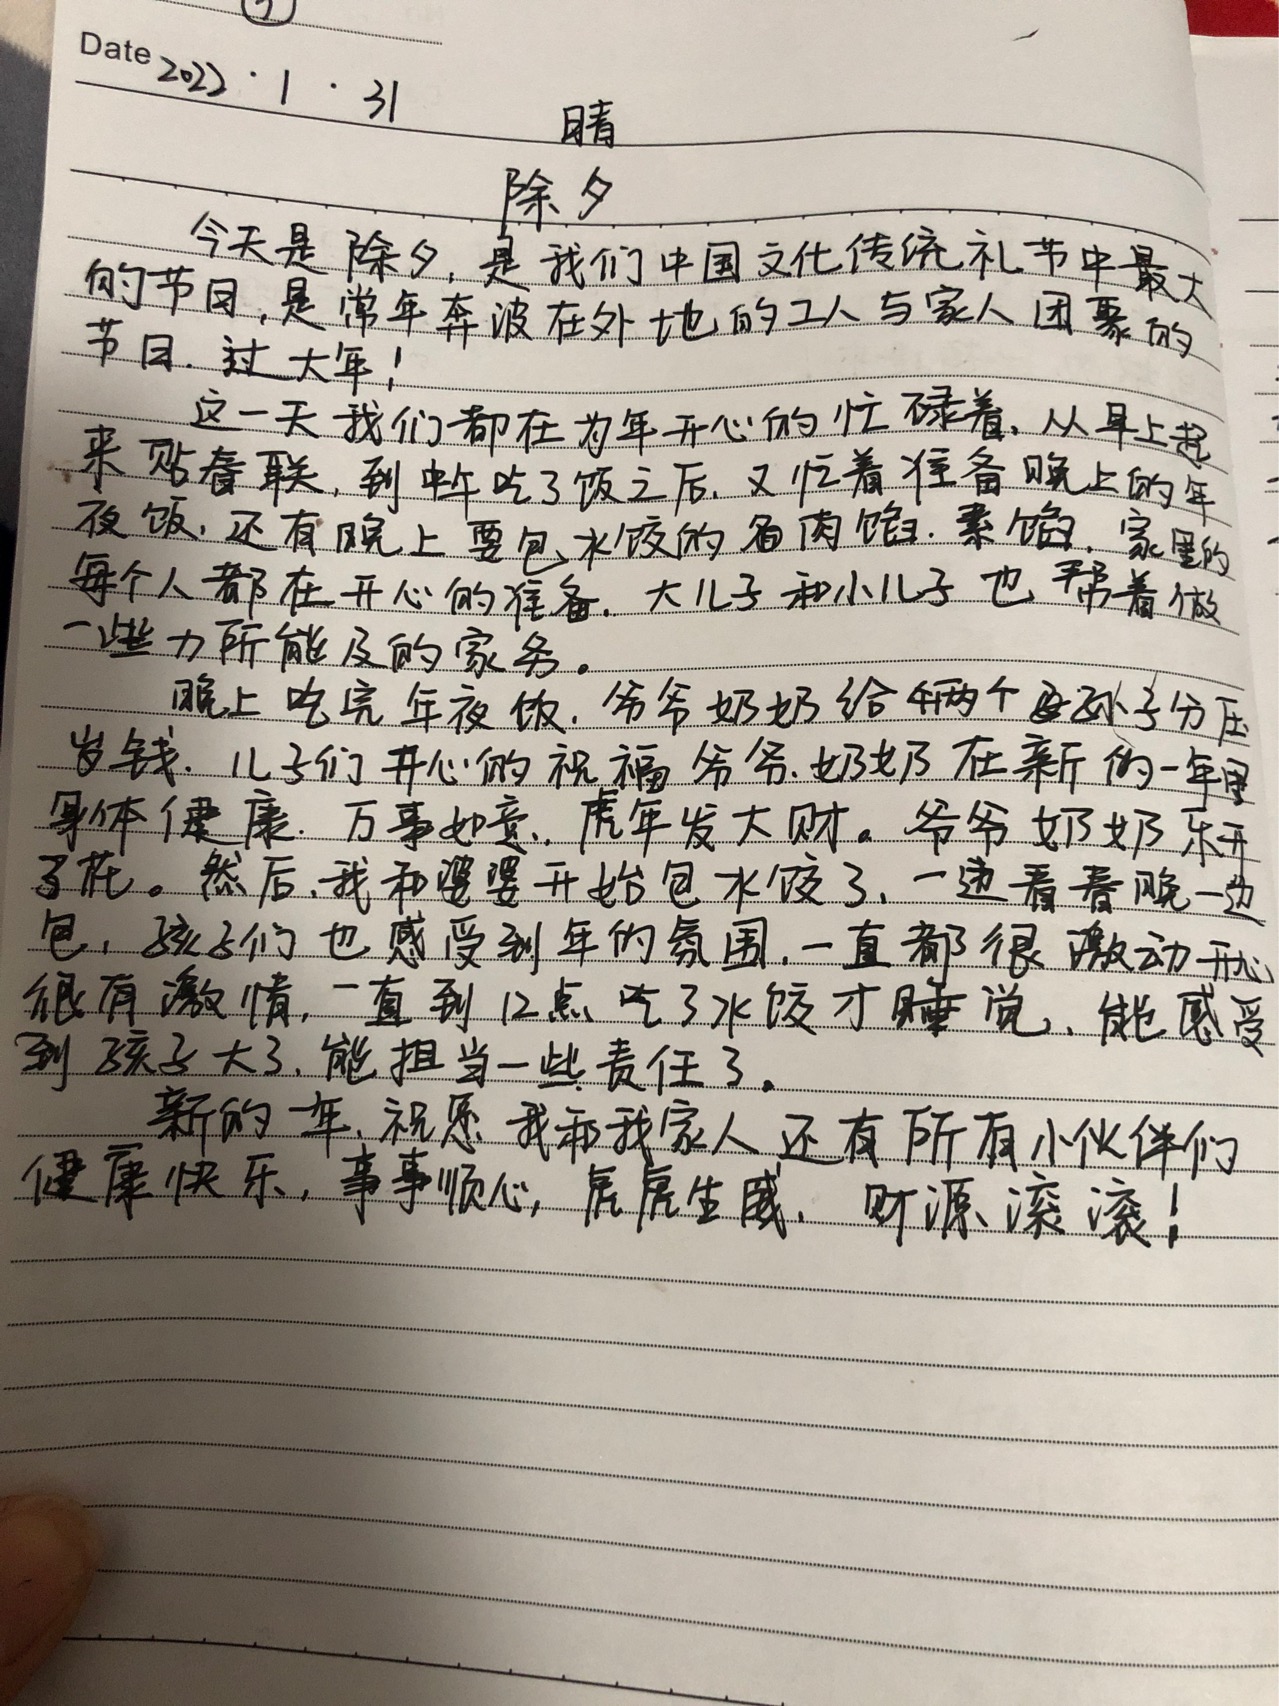 Date 2022·1·31
晴
除夕
今天是除夕，是我们中国文化传统礼节中最大
的节日，是常年奔波在外地的工人与家人团聚的
节日．过大年！
这一天我们都在为年开心的忙碌着．从早上起
来贴春联，到中午吃了饭之后．又忙着准备晚上的年
夜饭．还有晚上要包水饺的各肉馅．素馅．家里的
每个人都在开心的准备．大儿子和小儿子也帮着做
一些力所能及的家务。
晚上吃完年夜饭．爷爷奶奶给两个孙子分压
岁钱．儿子们开心的祝福爷爷．奶奶在新的一年里
身体健康．万事如意．虎年发大财。爷爷奶奶乐开
了花。然后．我和婆婆开始包水饺了．一边看春晚一边
包，孩子们也感受到年的氛围．一直都很激动开心
很有激情，一直到12点吃了水饺才睡觉．能感受
到孩子大了．能担当一些责任了。
新的一年．祝愿我和我家人还有所有小伙伴们
健康快乐，事事顺心，虎虎生威．财源滚滚！